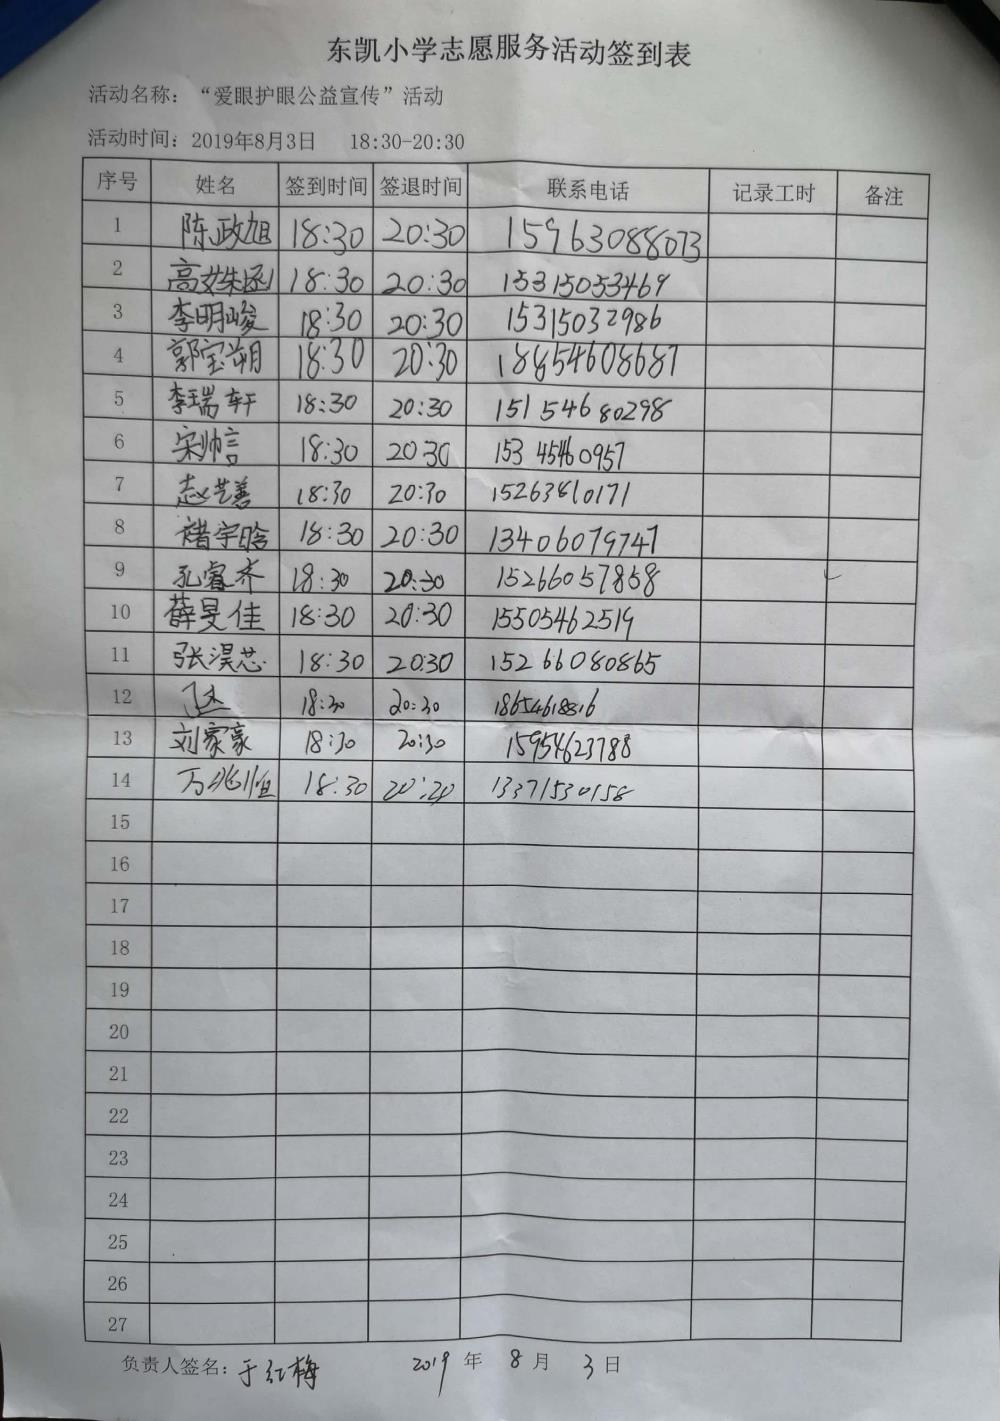 东凯小学志愿服务活动签到表
活动名称：“爱眼护眼公益宣传”活动
活动时间：2019年8月3日 18:30-20:30
序号 姓名 签到时间 签退时间 联系电话 记录工时 备注
1 陈政旭 18:30 20:30 15963088073
2 18:30 20:30 15315053469
3 李明峻 18:30 20:30 15315032986
4 郭宝朔 18:30 20:30 18854608687
5 李瑞轩 18:30 20:30 15154680298
6 宋帅言 18:30 20:30 15345460957
7 赵艺善 18:30 20:30 15263810171
8 褚宇晗 18:30 20:30 13406079747
9 孔睿齐 18:30 20:30 15266057858
10 薛旻佳 18:30 20:30 15505462519
11 张淏芯 18:30 20:30 15266080865
12 18:30 20:30
13 刘家豪 18:30 20:30 15954623788
14 万兆恒 18:30 13371530158
15
16
17
18
19
20
21
22
23
24
25
26
27
负责人签名：于红梅 2019 年 8 月 3 日